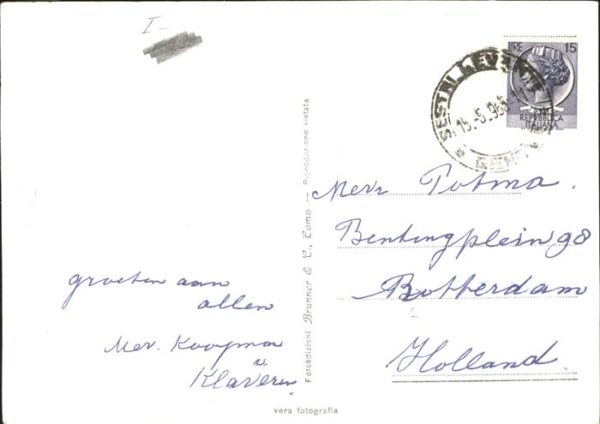 I-
LIRE 15
REPVBBLICA
ITALIANA
SESTRI LEVANTE
15.-5.96
groeten aan
allen
Mev. Kooyman
Klaveren
Mev. Potma
Bentingplein 98
Rotterdam
Holland.
Fotoedizioni Brunner & C., Como — Riproduzione vietata
vera fotografia